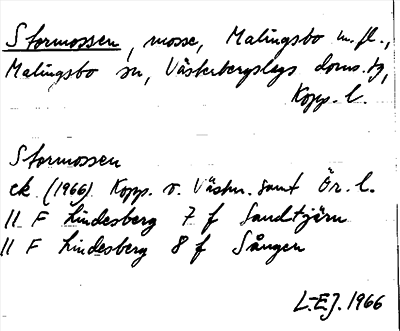 Stormossen, mosse, Malingsbo m.fl.,
Malingsbo sn, Västerbergslags doms.tg,
Kopp. l.
Stormossen
ek (1966) Kopp. o. Västm. samt Ör. l.
11 F Lindesberg 7 f Sandtjärn
11 F Lindesberg 8 f Sången
L-EJ. 1966